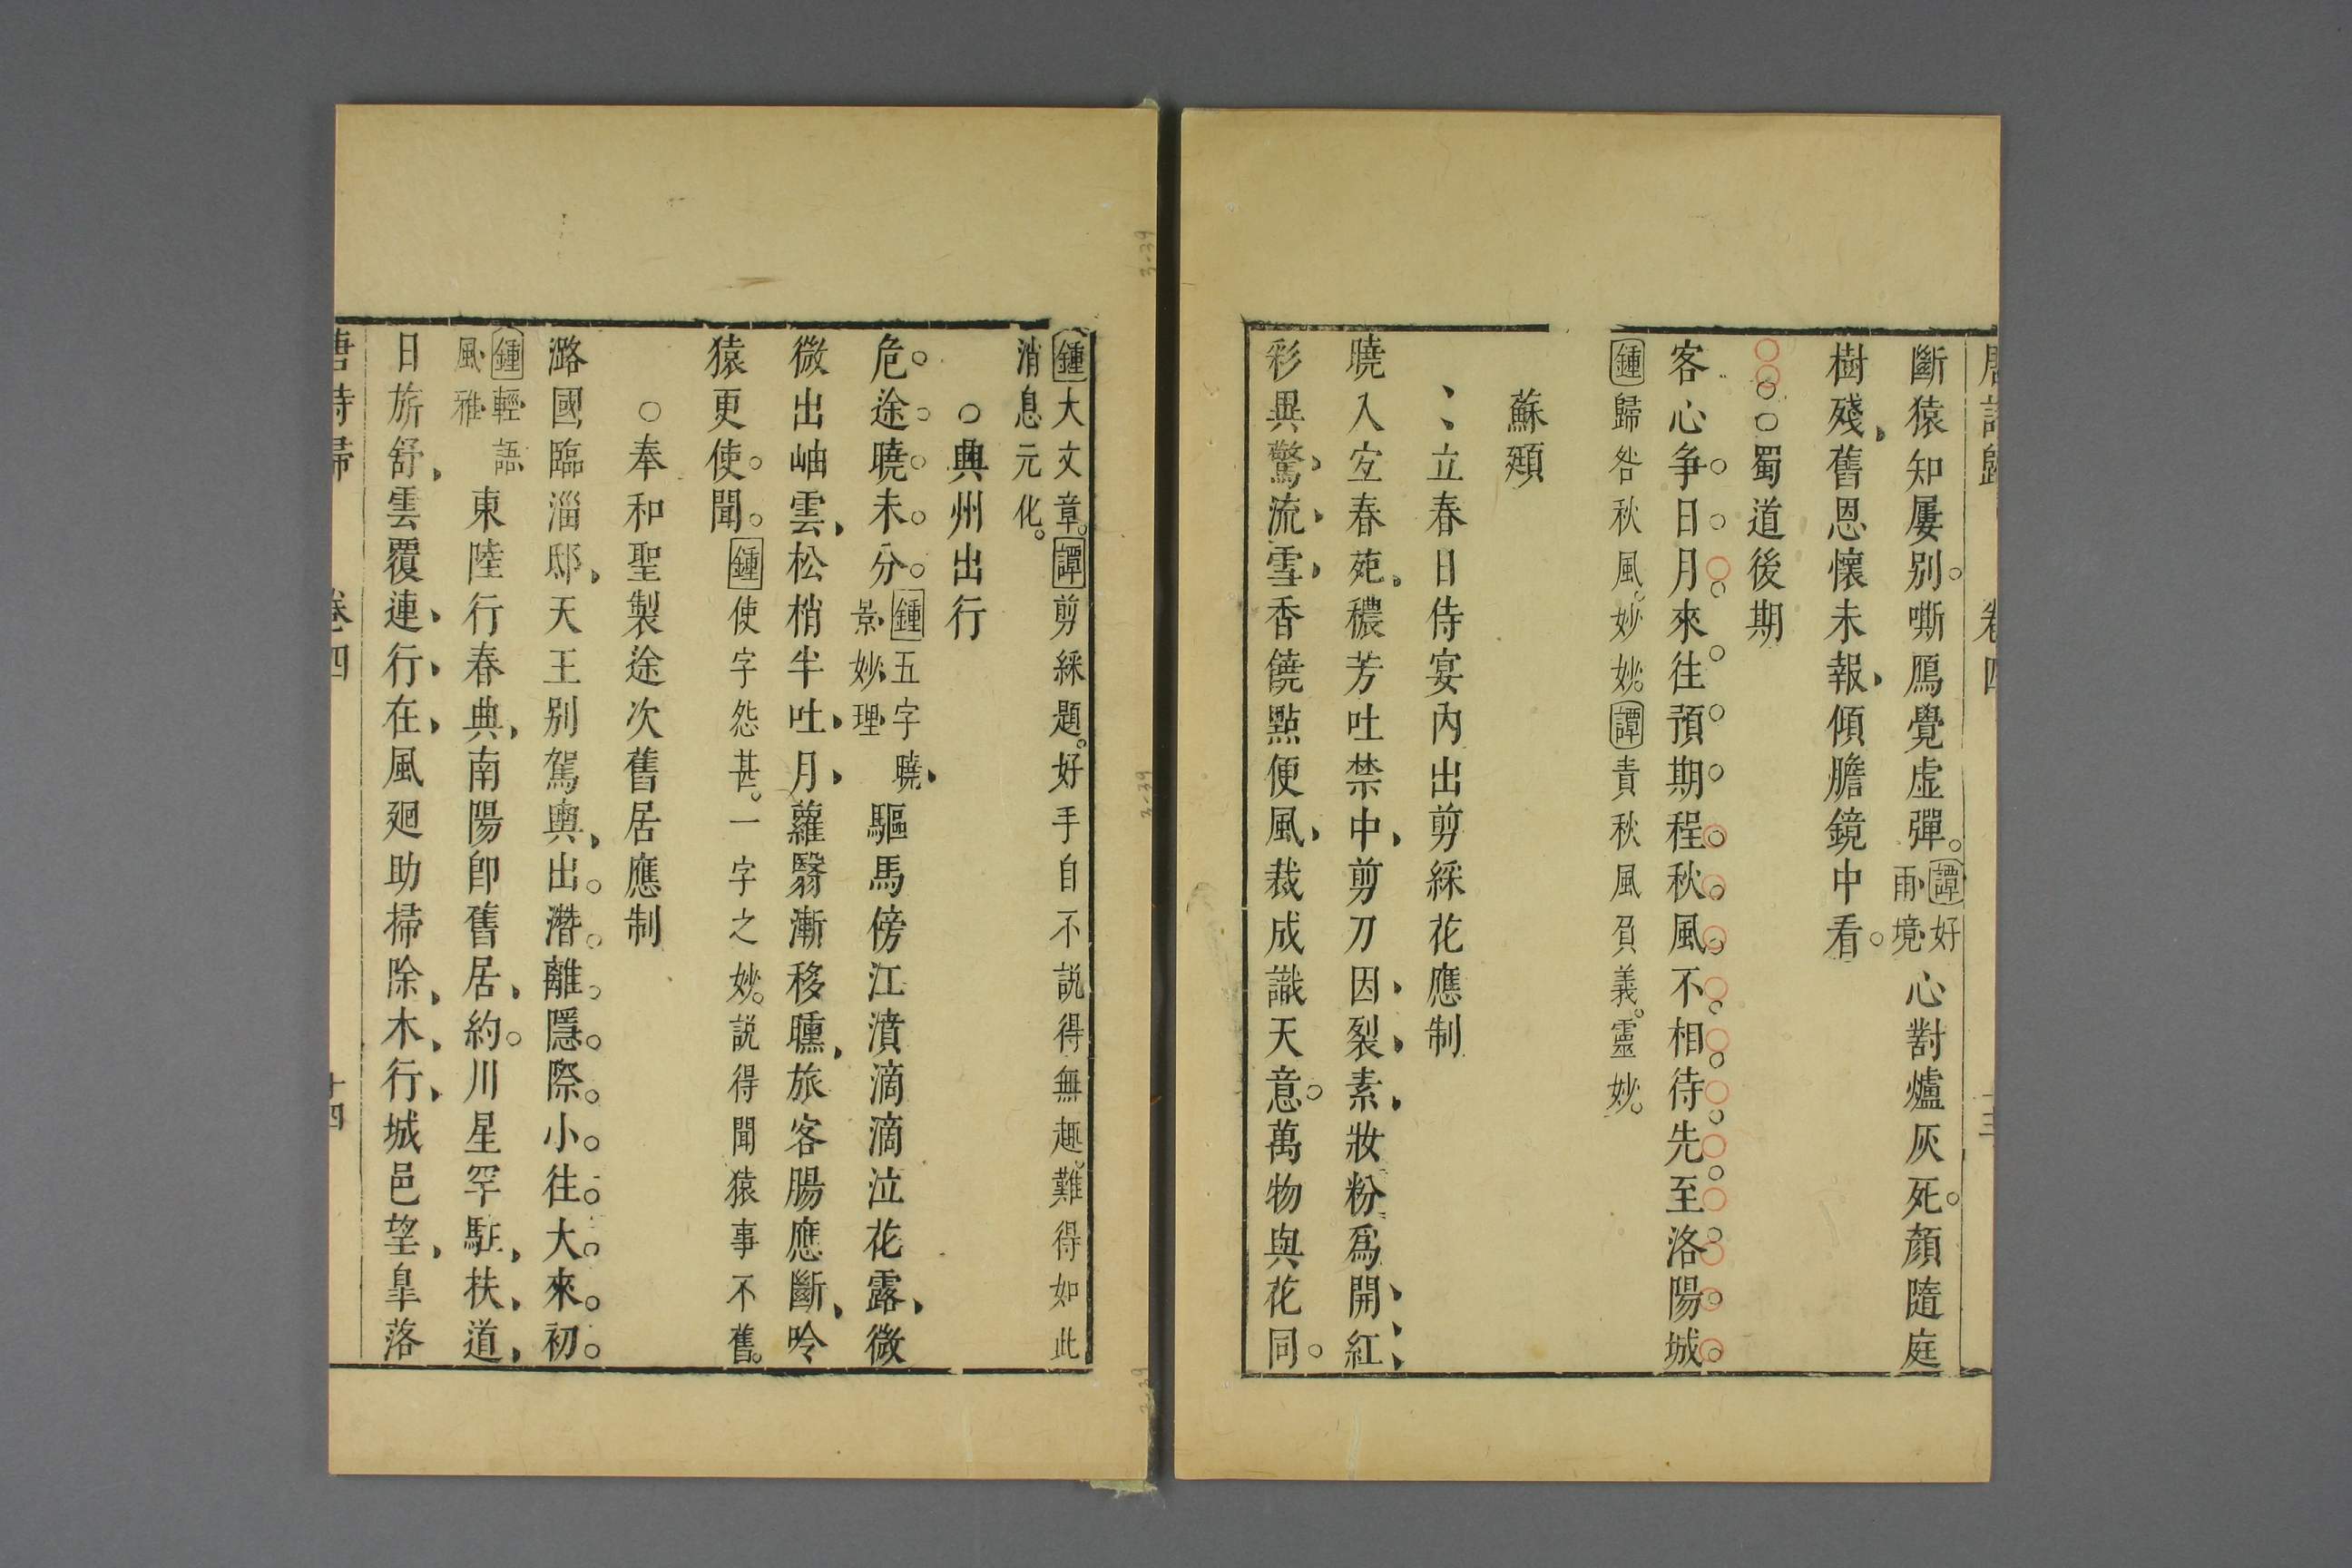 唐詩歸 卷四
斷猿知屢別。嘶鴈覺虛彈。譚好雨境心對爐灰死。顏隨庭
樹殘舊恩懷未報傾膽鏡中看。
○○蜀道後期
客心爭日月來往預期程秋風不相待先至洛陽城
鍾歸咎秋風。妙妙。譚責秋風負義。靈妙。
蘇頲
、、立春日侍宴內出剪綵花應制
曉入宜春苑。穠芳吐禁中剪刀因裂素妝粉爲開紅
彩異驚流雪香饒點便風裁成識天意。萬物與花同。
鍾大文章。譚剪綵題。好手自不説得無趣。難得如此
消息元化。
○興州出行
危途曉未分。鍾五字曉景妙理驅馬傍江濆滴滴泣花露微
微出岫雲松梢半吐月蘿翳漸移曛旅客腸應斷吟
猿更使聞。鍾使字怨甚。一字之妙。説得聞猿事不舊。
○奉和聖製途次舊居應制
潞國臨淄邸天王別駕輿出潛離隱際。小往大來初。
鍾輕語風雅東陸行春典南陽卽舊居約川星罕駐扶道
日旂舒雲覆連行在風廻助掃除木行城邑望皐落
唐詩歸 卷四 十四